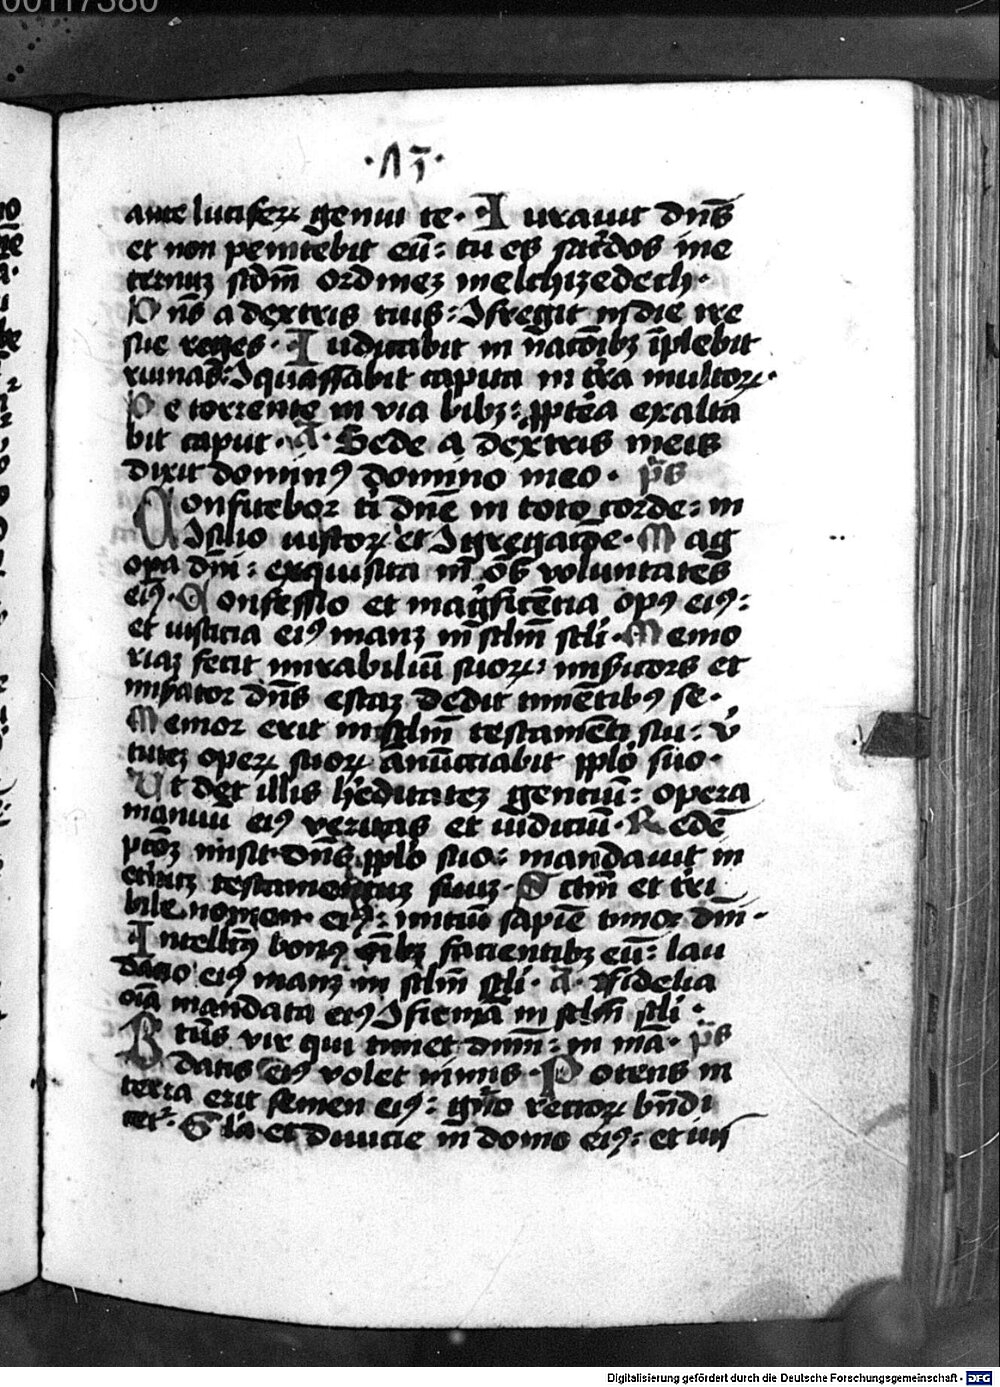 00117380
ante lucifeꝝ genui te· Iurauit dn̄s
et non penitebit eū: tu es sac̄dos in e
ternuꝫ scdm̄ ordineꝫ melchizedech·
Dn̄s a dextris tuis: ꝯfregit in die ire
sue reges· Iudicabit in nac̄oībꝫ īplebit
ruinas: ꝯquassabit capita in tr̄a multoꝝ·
De torrente in via bibꝫ: ꝓpt̄ea exalta
bit caput· a· Sede a dextris meis
dixit dominꝰ domino meo· p̄s
Confitebor ti dn̄e in toto corde: in
ꝯsilio iustoꝝ et ꝯgregac̄oe· Mag
opa dn̄i: exquisita in ōs voluntates
eiꝰ· Confessio et maḡficētia opꝰ eiꝰ:
et iusticia eiꝰ manꝫ in sclm̄ scli· Memo
riaꝫ fecit mirabiliū suoꝝ: mis̄icors et
mis̄ator dn̄s escaꝫ dedit timētibꝰ se·
Memor erit in sclm̄ testamēti sui: v̓
tuteꝫ opeꝝ suoꝝ anūciabit pplō suo·
Ut det illis h̓editateꝫ genciū: opera
manuū eiꝰ veritas et iudiciū· Redē
pcōꝫ misit dn̄s pplō suo: mandauit in
et̓nuꝫ testamentuꝫ suuꝫ· Sctm̄ et t̓ri
bile nomen eiꝰ: iniciū sapiē timor dn̄i·
Intellc̄ꝰ bonꝰ oībꝫ facientibꝫ eū: lau
dac̄io eiꝰ manꝫ in sclm̄ scli· a· Fidelia
oīa mandata eiꝰ ꝯfirmā in sclm̄ scli·
Btūs vir qui timet dnm̄: in mā· p̄s
datis eiꝰ volet nimis· Potens in
terra erit semen eiꝰ: gn̓o rectoꝝ bn̄di
cet᷑· Gl̓a et diuicie in domo eiꝰ: et iu
Digitalisierung gefördert durch die Deutsche Forschungsgemeinschaft - DFG